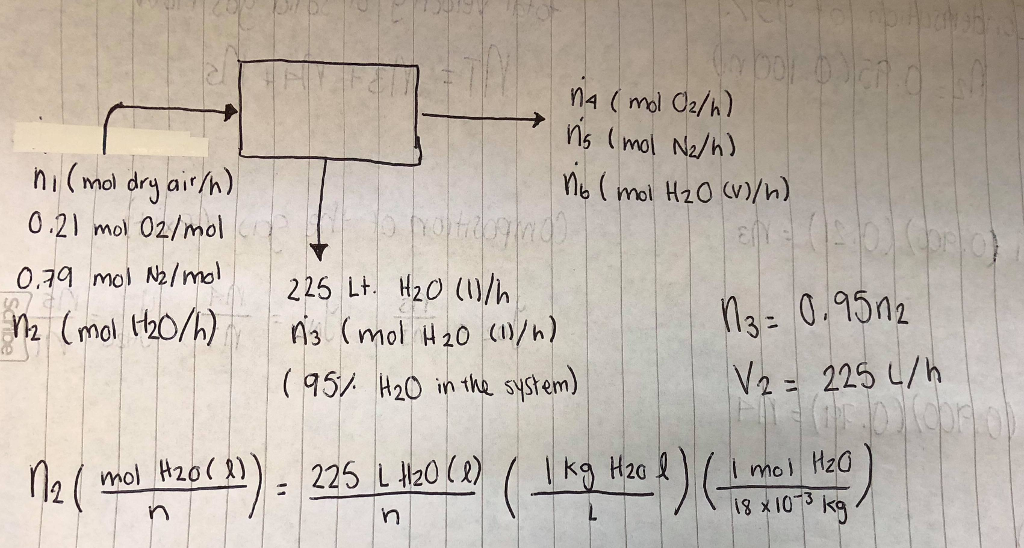 ṅ4 ( mol O2/h)
ṅ5 ( mol N2/h)
ṅ6 ( mol H2O (v)/h)
n1 (mol dry air/h)
0.21 mol O2/mol
0.79 mol N2/mol
n2 (mol H2O/h)
225 Lt. H2O (l)/h
ṅ3 (mol H2O (l)/h)
(95% H2O in the system)
n3 = 0.95n2
V2 = 225 L/h
n2 ( mol H2O(l) / h ) = 225 L H2O(l) / h ( 1 kg H2O l / L ) ( 1 mol H2O / 18 x 10^-3 kg )